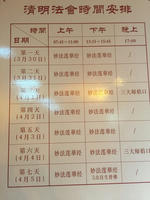 清明法會時間安排
時間 上午 下午 晚上
日期 07:45—11:00 13:15—17:45 19:00
第一天 妙法蓮華經 妙法蓮華經 /
(3月30日)
第二天 妙法蓮華經 妙法蓮華經 /
(3月31日)
第三天 妙法蓮華經 妙法蓮華經 三大師焰口
(4月1日)
第四天 妙法蓮華經 妙法蓮華經 /
(4月2日)
第五天 妙法蓮華經 妙法蓮華經 /
(4月3日)
第六天 妙法蓮華經 妙法蓮華經 三大師焰口
(4月4日)
第七天 妙法蓮華經 妙法蓮華經 /
(4月5日)